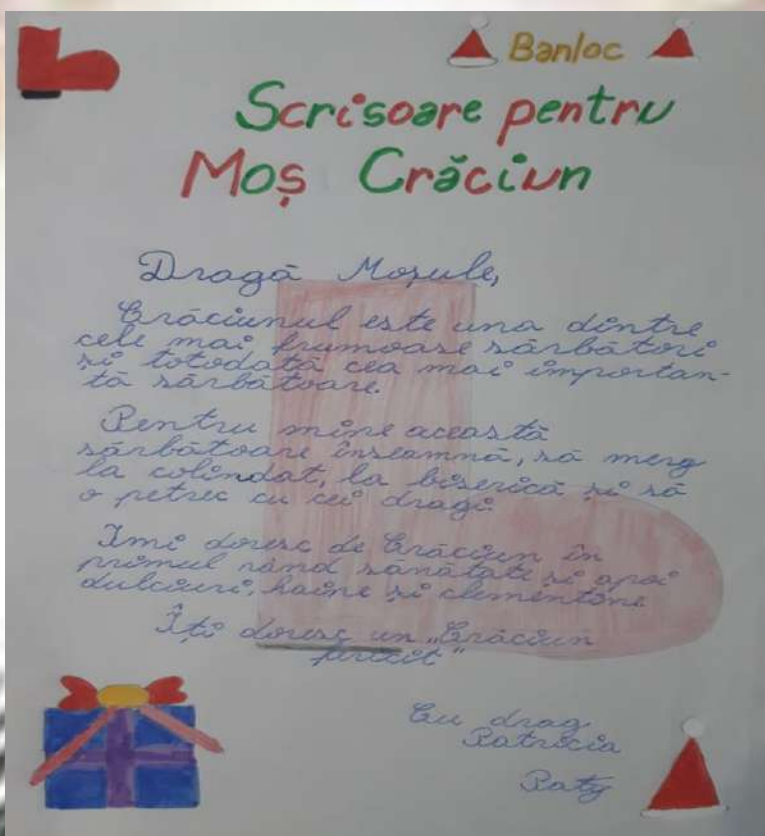 Banloc
Scrisoare pentru
Moș Crăciun
Dragă Moșule,
Crăciunul este una dintre
cele mai frumoase sărbători
și totodată cea mai importan-
tă sărbătoare.
Pentru mine această
sărbătoare înseamnă, să merg
la colindat, la biserică și să
o petrec cu cei dragi.
Îmi doresc de Crăciun în
primul rând sănătate și apoi
dulciuri, haine și clementine
Îți doresc un „Crăciun
fericit"
Cu drag
Patricia
Paty